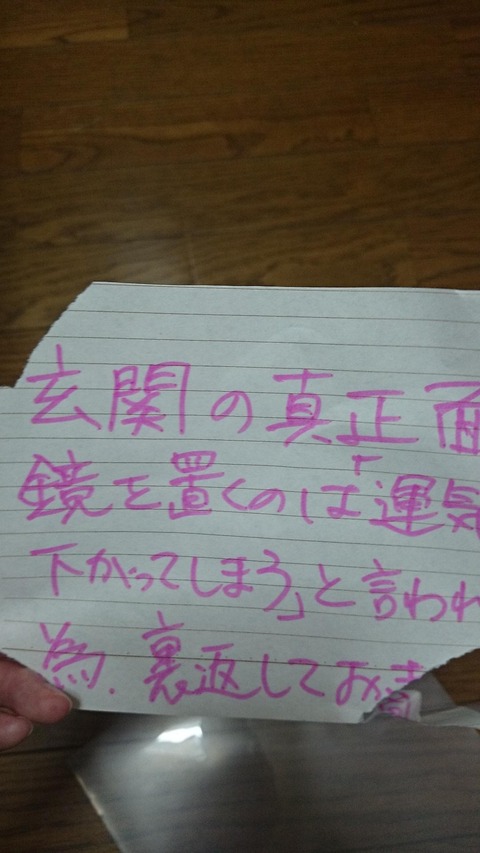 玄関の真正面
鏡を置くのは「運気
下がってしまう」と言われ
為、裏返してお